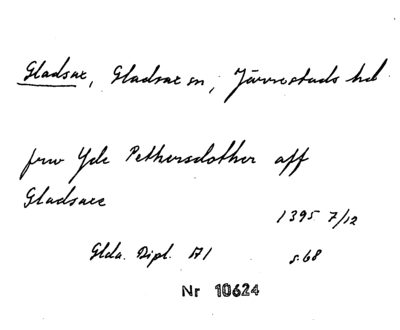 Gladsax, Gladsax sn, Järrestads hd
frw Yde Pethersdother aff
Gladsaxe
1395 7/12
Glda. Dipl. A1 s. 68
Nr 10624